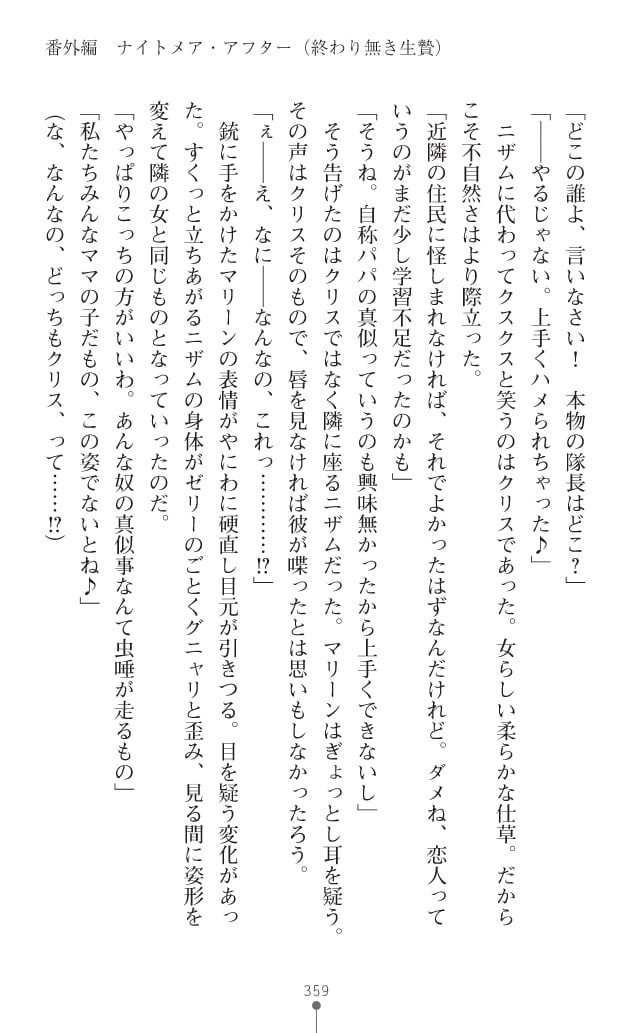 番外編　ナイトメア・アフター（終わり無き生贄）
「どこの誰よ、言いなさい！　本物の隊長はどこ？」
「――やるじゃない。上手くハメられちゃった♪」
　ニザムに代わってクスクスと笑うのはクリスであった。女らしい柔らかな仕草。だから
こそ不自然さはより際立った。
「近隣の住民に怪しまれなければ、それでよかったはずなんだけれど。ダメね、恋人って
いうのがまだ少し学習不足だったのかも」
「そうね。自称パパの真似っていうのも興味無かったから上手くできないし」
　そう告げたのはクリスではなく隣に座るニザムだった。マリーンはぎょっとし耳を疑う。
その声はクリスそのもので、唇を見なければ彼が喋ったとは思いもしなかったろう。
「ぇ――え、なに――なんなの、これっ…………!?」
　銃に手をかけたマリーンの表情がやにわに硬直し目元が引きつる。目を疑う変化があっ
た。すくっと立ちあがるニザムの身体がゼリーのごとくグニャリと歪み、見る間に姿形を
変えて隣の女と同じものとなっていったのだ。
「やっぱりこっちの方がいいわ。あんな奴の真似事なんて虫唾が走るもの」
「私たちみんなママの子だもの、この姿でないとね♪」
（な、なんなの、どっちもクリス、って……!?）
359